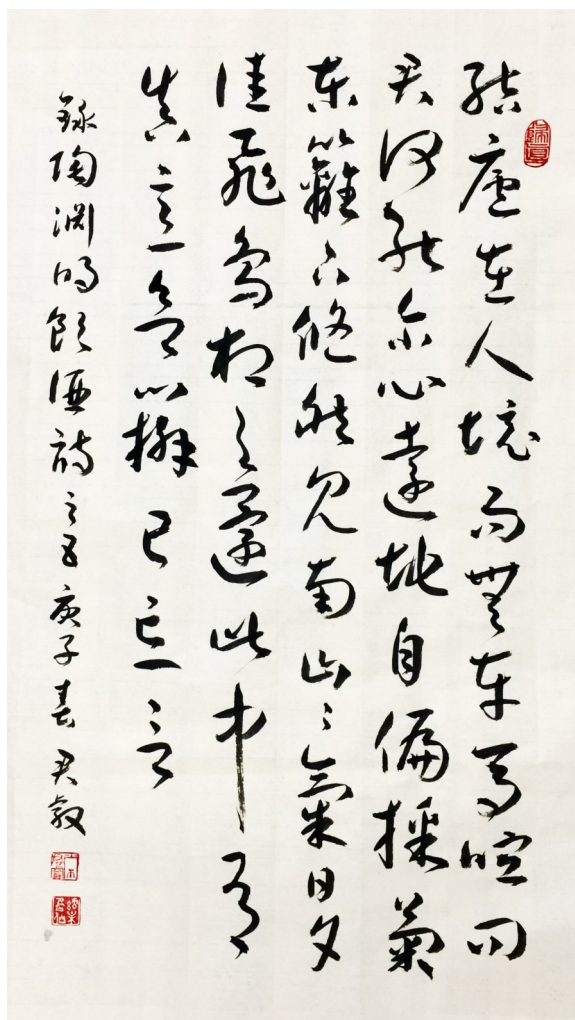 結廬在人境而無車馬喧問
君何能尔心遠地自偏採菊
東籬下悠然見南山々氣日夕
佳飛鳥相與還此中有
真意欲辨已忘言
錄陶淵明飲酒詩之五庚子春君毅